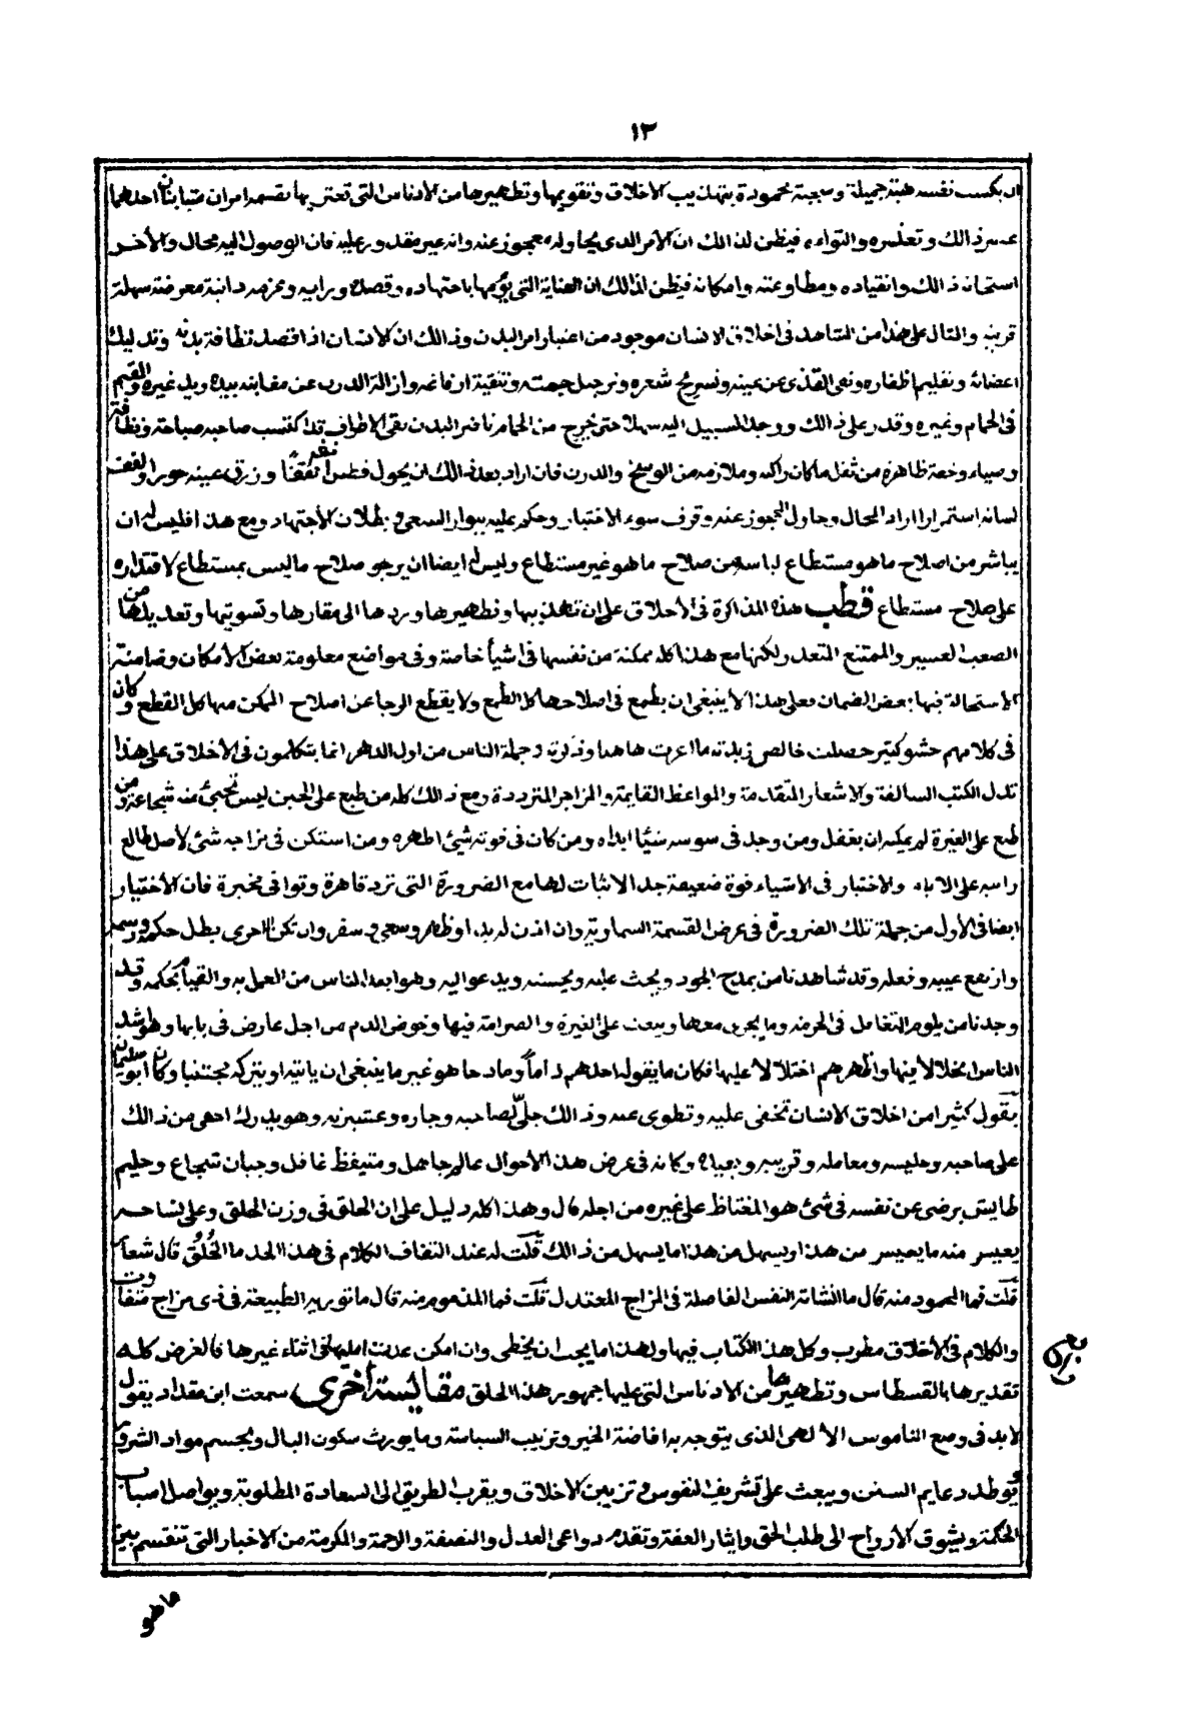 ١٣
ان يكسب نفسه هيئة جميلة وسجية محمودة بتهذيب الاخلاق وتقويمها وتطهيرها من الادناس التى تعتريها يقسمه امران متباينان احدهما
عسر ذالك وتعذره والتواءه فيظن لذالك ان الامر الذى يحاوله معجوز عنه وانه غير مقدور عليه فان الوصول اليه محال والأخر
استحان ذالك وانقياده ومطاوعته وامكانه فيظن لذالك ان الغاية التى يؤمها باجتهاده وقصده ورايه وعزمه دانية معرضة سهلة
قريبه والمثال على هذا من المشاهد فى اخلاق الانسان موجود من اعتبار امر البدن وذالك ان الانسان اذا قصد نظافة بدنه وتدليك
اعضائه وتقليم اظفاره ونفى القذى عن عينه وتسريح شعره وترجيل جمته وتنقية ارفاغه وازالة الدرن عن مغابنه بيده ويد غيره والقيم
فى الحمام وغيره وقدر على ذالك ووجد السبيل اليه سهلا حتى خرج من الحمام ناضر البدن نقى الاطراف قد اكتسب صاحبه صباحة ونظافة
وضياء وخفة ظاهرة من ثقل ما كان راكبه وملازمه من الوسخ والدرن فان اراد بعد ذالك ان يحول فطس انفه قنًا وزرق عينه حورا ولفف
لسانه استمرارا اراد المحال وحاول المعجوز عنه وقرف سوء الاختيار وحكم عليه ببوار السعى وبطلان الأجتهاد ومع هذا فليس له ان
يباشر من اصلاح ما هو مستطاع لياسه من صلاح ما هو غير مستطاع وليس له ايضا ان يرجو صلاح ما ليس بمستطاع لاقتداره
على صلاح مستطاع قطب هذه المذاكرة فى الأخلاق على ان تهذيبها وتطهيرها وردها الى مقارها وتسويتها وتعديلها من
الصعب العسير والممتنع المتعذر ولكنها مع هذا كله ممكنة من نفسها فى اشيأ خاصة وفى مواضع معلومة بعض الامكان وضامنة
الاستحالة فيها بعض الضمان فعلى هذا لا ينبغى ان يطمع فى اصلاحها كل الطمع ولا يقطع الرجا عن اصلاح الممكن منها كل القطع وكان
فى كلامهم حشو كثير حصلت خالص زبدته ما اعربت هاهنا وجملة الناس من اول الدهر انما يتكلمون فى الأخلاق على هذا
تدل الكتب السالفة والاشعار المتقدمة والمواعظ القايمة والمزاجر المترددة ومع ذالك كله من طبع على الجبن ليس تجئ منه شجاعة ومن
طبع على الغيرة لم يمكنه ان يغفل ومن وجد فى سوسه شيئا ابداه ومن كان فى قوته شئ اظهره ومن استكن فى مزاجه شئ لاصل طالع
راسه على الاباه والاختيار فى الاشياء قوة ضعيفة جدا لاثبات لها مع الضرورة التى ترد قاهرة وتوافى مخبرة فان الأختيار
ايضا فى الأول من جملة تلك الضرورة فى عرض القسمة السماوية وان اذن له بدا وظهر وسعى وسفر وان تكن الاخرى بطل حكمه ورسمه
وارتفع عيبه وفعله وقد شاهدنا من يمدح الجود ويحث عليه ويحسنه ويدعو اليه وهو ابعد الناس من العمل به والقيام بحكمه وقد
وجدنا من يلوم التغافل فى الحرمة وما يجرى معها ويبعث على الغيرة والصرامة فيها وخوض الدم من اجل عارض فى بابها وهو اشد
الناس انحلالا فيها واظهرهم اختلالا عليها فكان ما يقوله احدهم ذاماً ومادحا هو غير ما ينبغى ان ياتيه او يتركه مجتنبا وكان ابو سليمان
يقول كثيرا من اخلاق الانسان تخفى عليه وتطوى عنه وذالك جلىّ لصاحبه وجاره وعشيرته وهو يدرك اخفى من ذالك
على صاحبه وجليسه ومعامله وقريبه وبعيده وكانه فى عرض هذه الأحوال عالم جاهل ومتيقظ غافل وجبان شجاع وحليم
طايش يرضى عن نفسه فى شئ هو المغتاظ على غيره من اجله قال وهذا كله دليل على ان الخلق فى وزن الخلق وعلى نساجه
يعسر منه ما يعسر من هذا ويسهل من هذا ما يسهل من ذالك قلت له عند التفاف الكلام فى هذا الحد ما الخُلُقُ قال
قلت فما المحمود منه قال ما انشاته النفس الفاضلة فى المزاج المعتدل قلت فما المذموم منه قال ما توربه الطبيعة فى ذى مزاج متفاوت
والكلام فى الأخلاق مطرب وكل هذا الكتاب فيها ولهذا ما يجب ان يخطى وان امكن عدنا اليها فى اثناء غيرها فالغرض كله
تقديرها بالقسطاس وتطهيرها من الادناس التى عليها جمهور هذا الخلق مقايسة أخرى سمعت ابن مقداد يقول
لابد فى وضع الناموس الالهى الذى يتوجه به افاضة الخير وترتيب السياسة وما يورث سكون البال ويجسم مواد الشر و
يوطد دعايم السنن ويبعث على تشريف النفوس وتزيين الاخلاق ويقرب الطريق الى السعادة المطلوبة ويواصل اسباب
الحكمة ويشوق الأرواح الى طلب الحق وايثار العفة وتقدم دواعى العدل والنصفة والرحمة والمكرمة من الاخبار التى تنقسم بين
ما هو